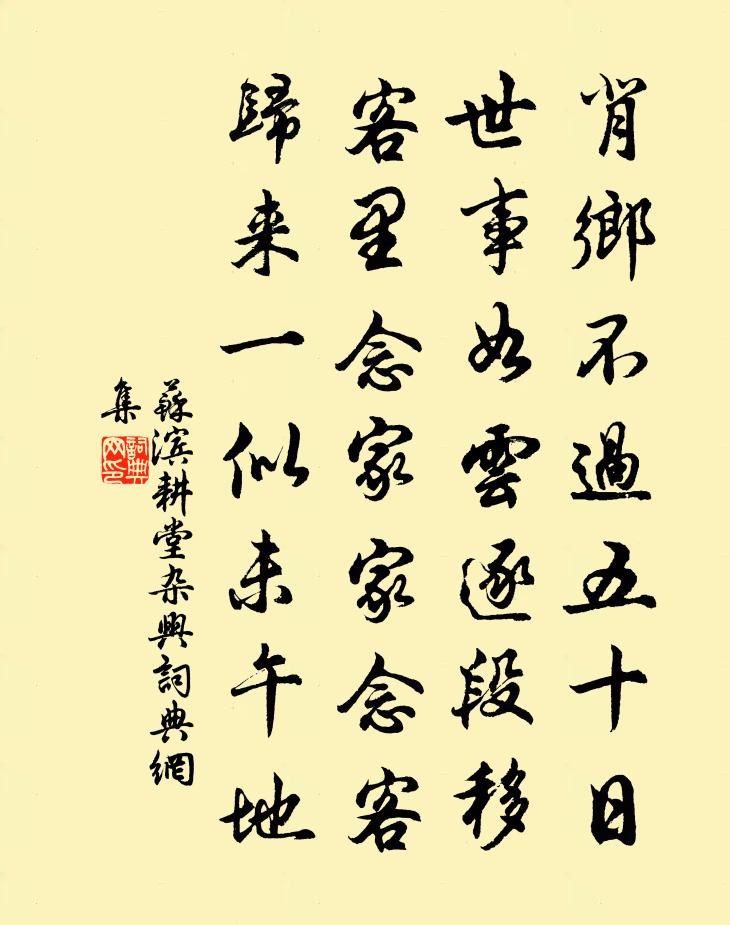 肖鄉不過五十日
世事如雲逐段移
客里念家家念客
歸来一似未午地
蘇濱耕堂杂興詞典網
集
詞典
网印